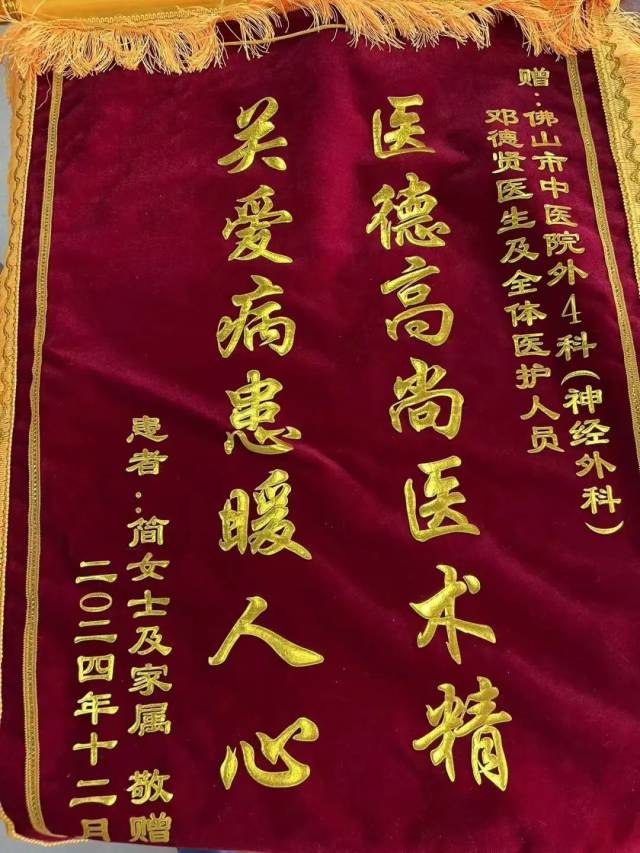 赠：佛山市中医院外4科(神经外科)
邓德贤医生及全体医护人员
医德高尚医术精
关爱病患暖人心
患者：简女士及家属 敬赠
二〇二四年十二月